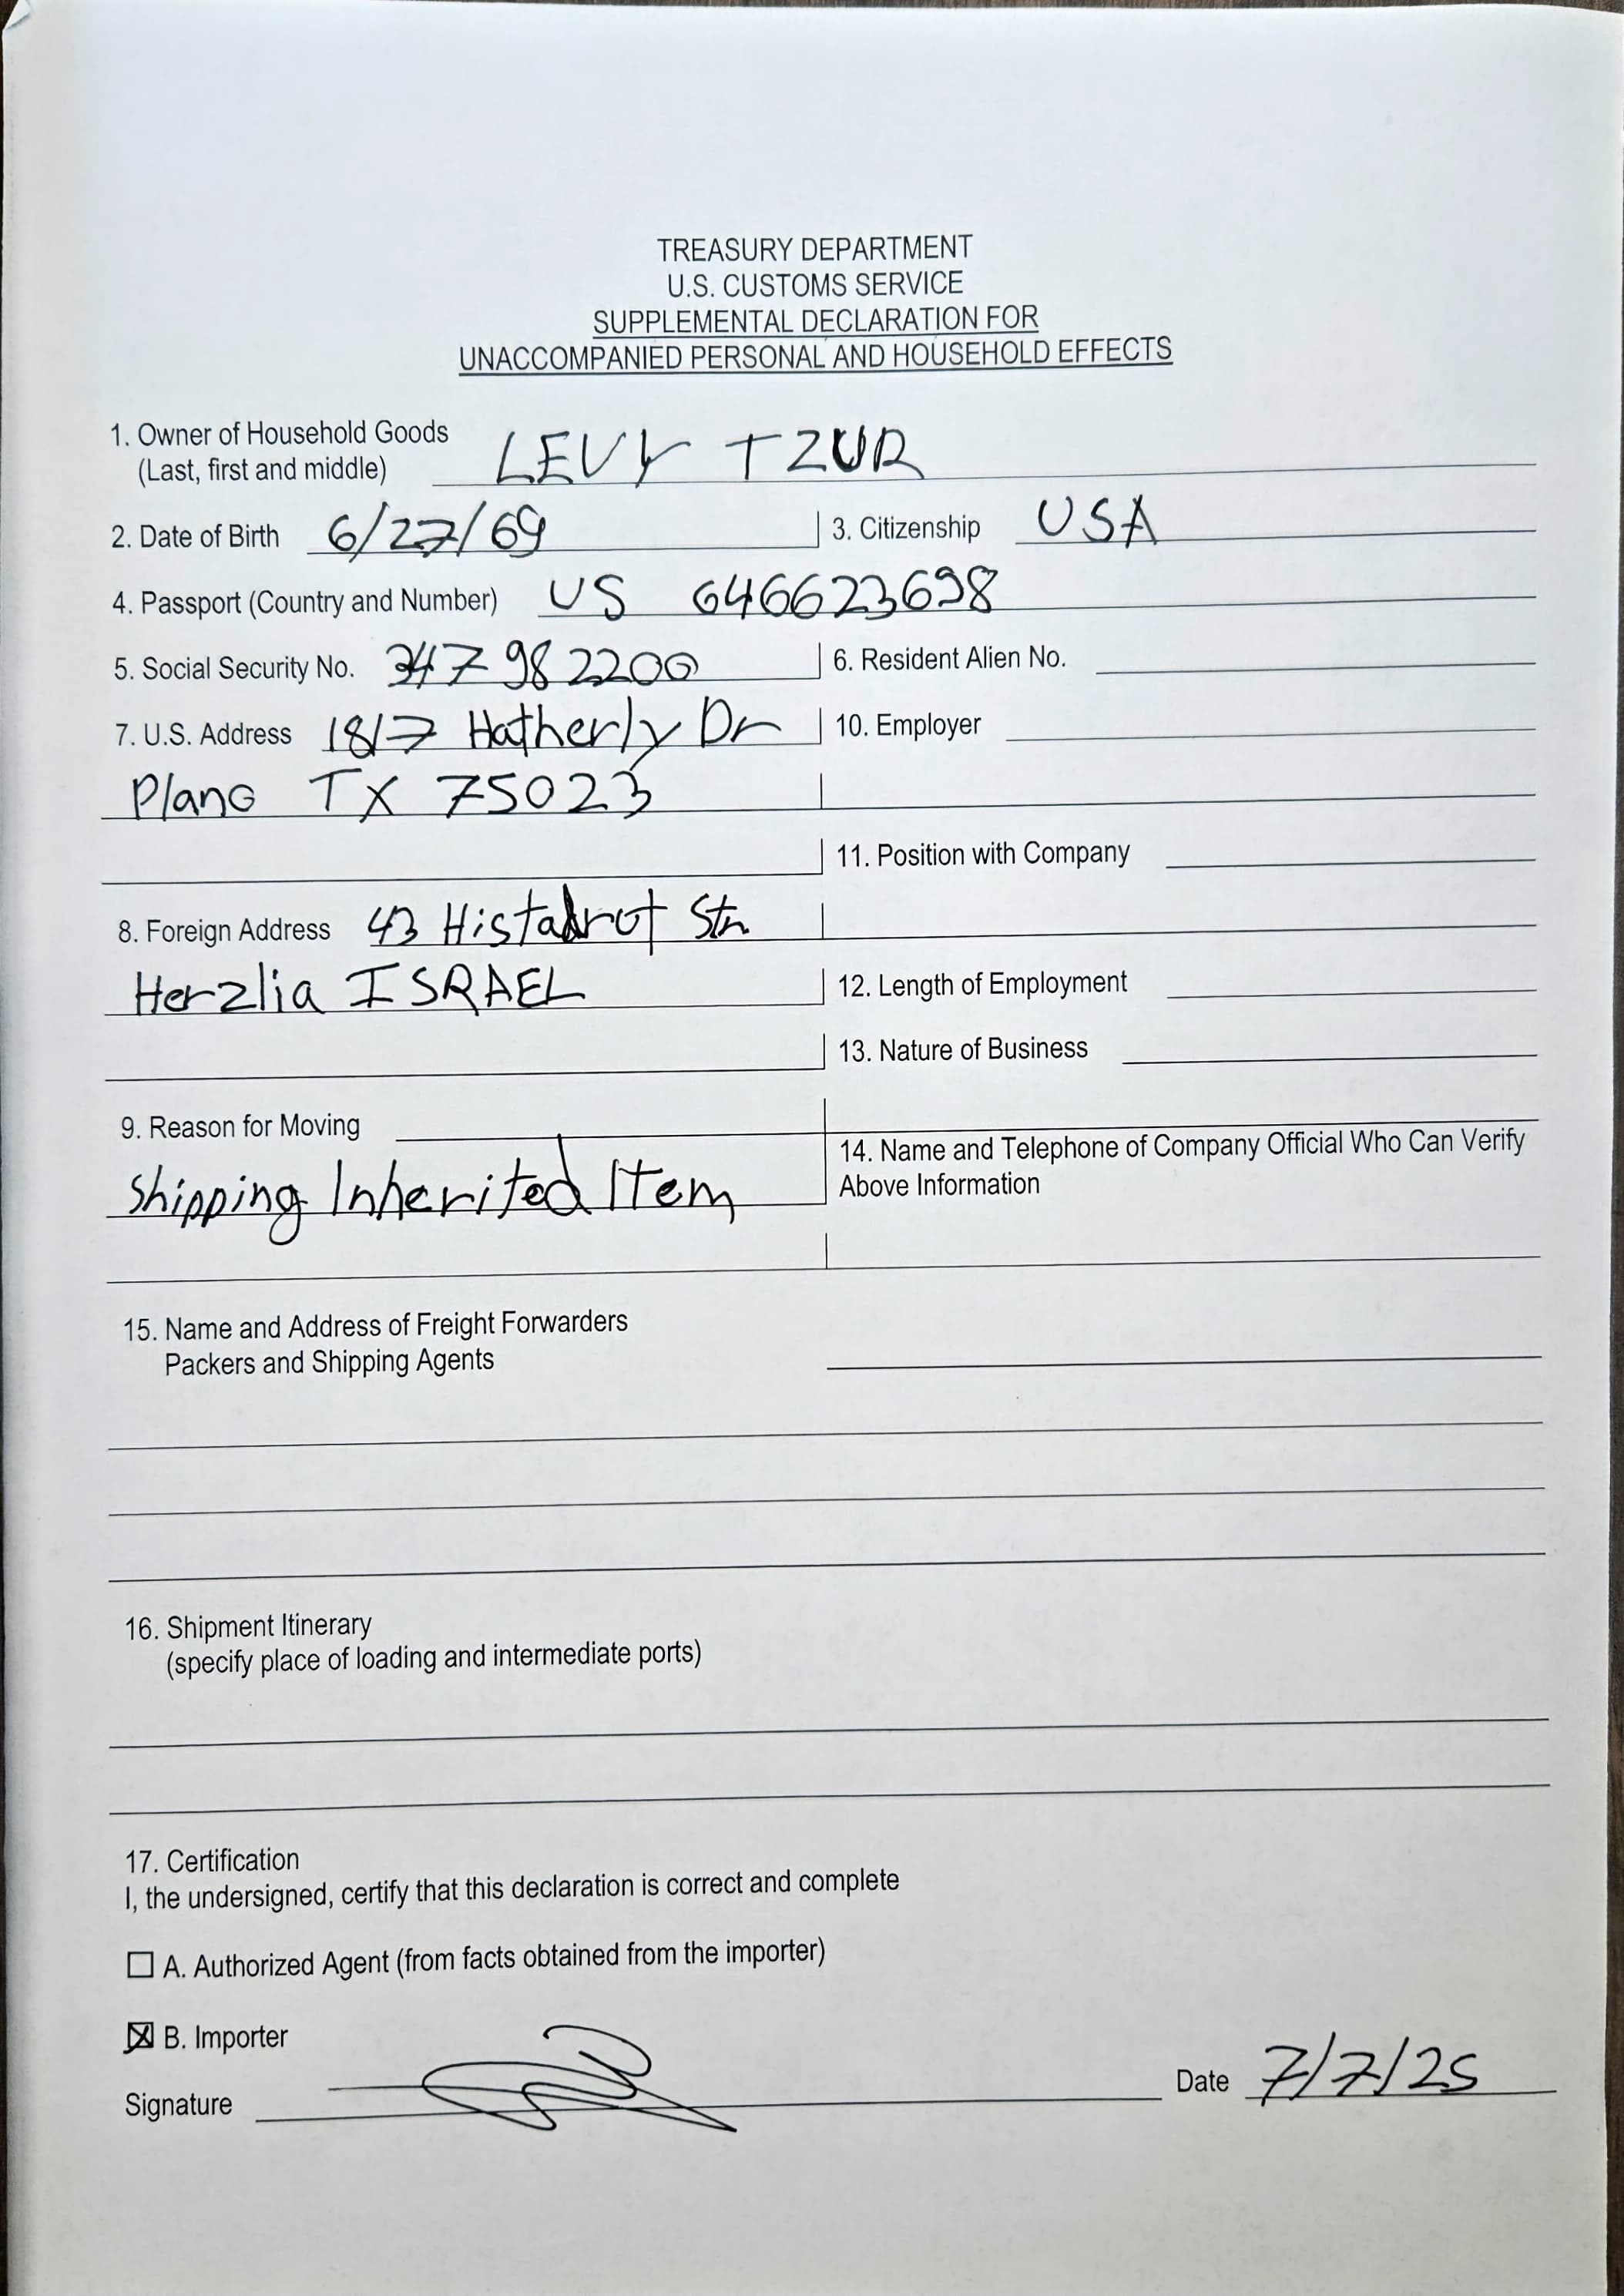 TREASURY DEPARTMENT
U.S. CUSTOMS SERVICE
SUPPLEMENTAL DECLARATION FOR
UNACCOMPANIED PERSONAL AND HOUSEHOLD EFFECTS
1. Owner of Household Goods
(Last, first and middle) LEVY TZUR
2. Date of Birth 6/27/69 3. Citizenship USA
4. Passport (Country and Number) US 646623698
5. Social Security No. 347 98 2200 6. Resident Alien No.
7. U.S. Address 1817 Hatherly Dr 10. Employer
Plano TX 75023
11. Position with Company
8. Foreign Address 43 Histadrut Str
Herzlia ISRAEL 12. Length of Employment
13. Nature of Business
9. Reason for Moving
Shipping Inherited Item
14. Name and Telephone of Company Official Who Can Verify
Above Information
15. Name and Address of Freight Forwarders
Packers and Shipping Agents
16. Shipment Itinerary
(specify place of loading and intermediate ports)
17. Certification
I, the undersigned, certify that this declaration is correct and complete
A. Authorized Agent (from facts obtained from the importer)
B. Importer
Signature Date 7/7/25